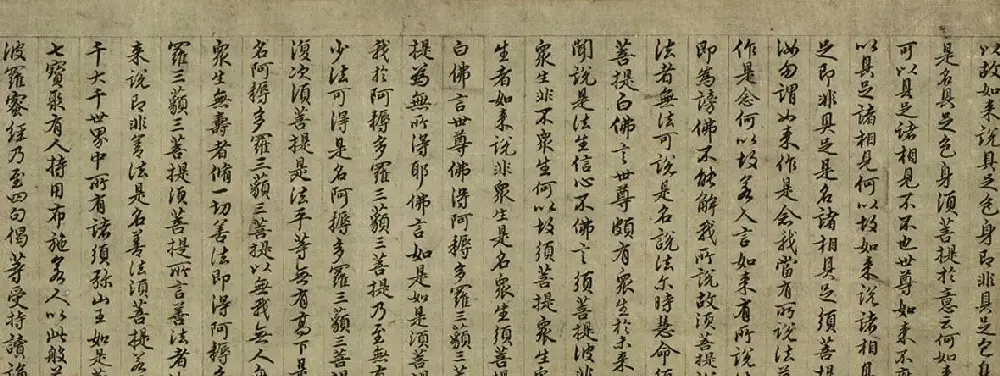 以故如来說具足色身即非具足色身
是名具足色身須菩提於意云何如
可以具足諸相見不不也世尊如来不
以具足諸相見何以故如来說諸相具
足即非具足是名諸相具足須菩提
汝勿謂如来作是念我當有所說法
作是念何以故若人言如来有所說
即為謗佛不能解我所說故須菩提
法者無法可說是名說法尒時慧命須
菩提白佛言世尊頗有衆生於未来
聞說是法生信心不佛言須菩提彼非
衆生非不衆生何以故須菩提衆生
生者如来說非衆生是名衆生須菩提
白佛言世尊佛得阿耨多羅三藐三
提為無所得耶佛言如是如是須菩
我於阿耨多羅三藐三菩提乃至無有
少法可得是名阿耨多羅三藐三菩
復次須菩提是法平等無有高下是
名阿耨多羅三藐三菩提以無我無人
衆生無壽者脩一切善法即得阿耨
羅三藐三菩提須菩提所言善法者
来說即非善法是名善法須菩提若
千大千世界中所有諸須弥山王如是
七寳聚有人持用布施若人以此般
波羅蜜經乃至四句偈等受持讀誦